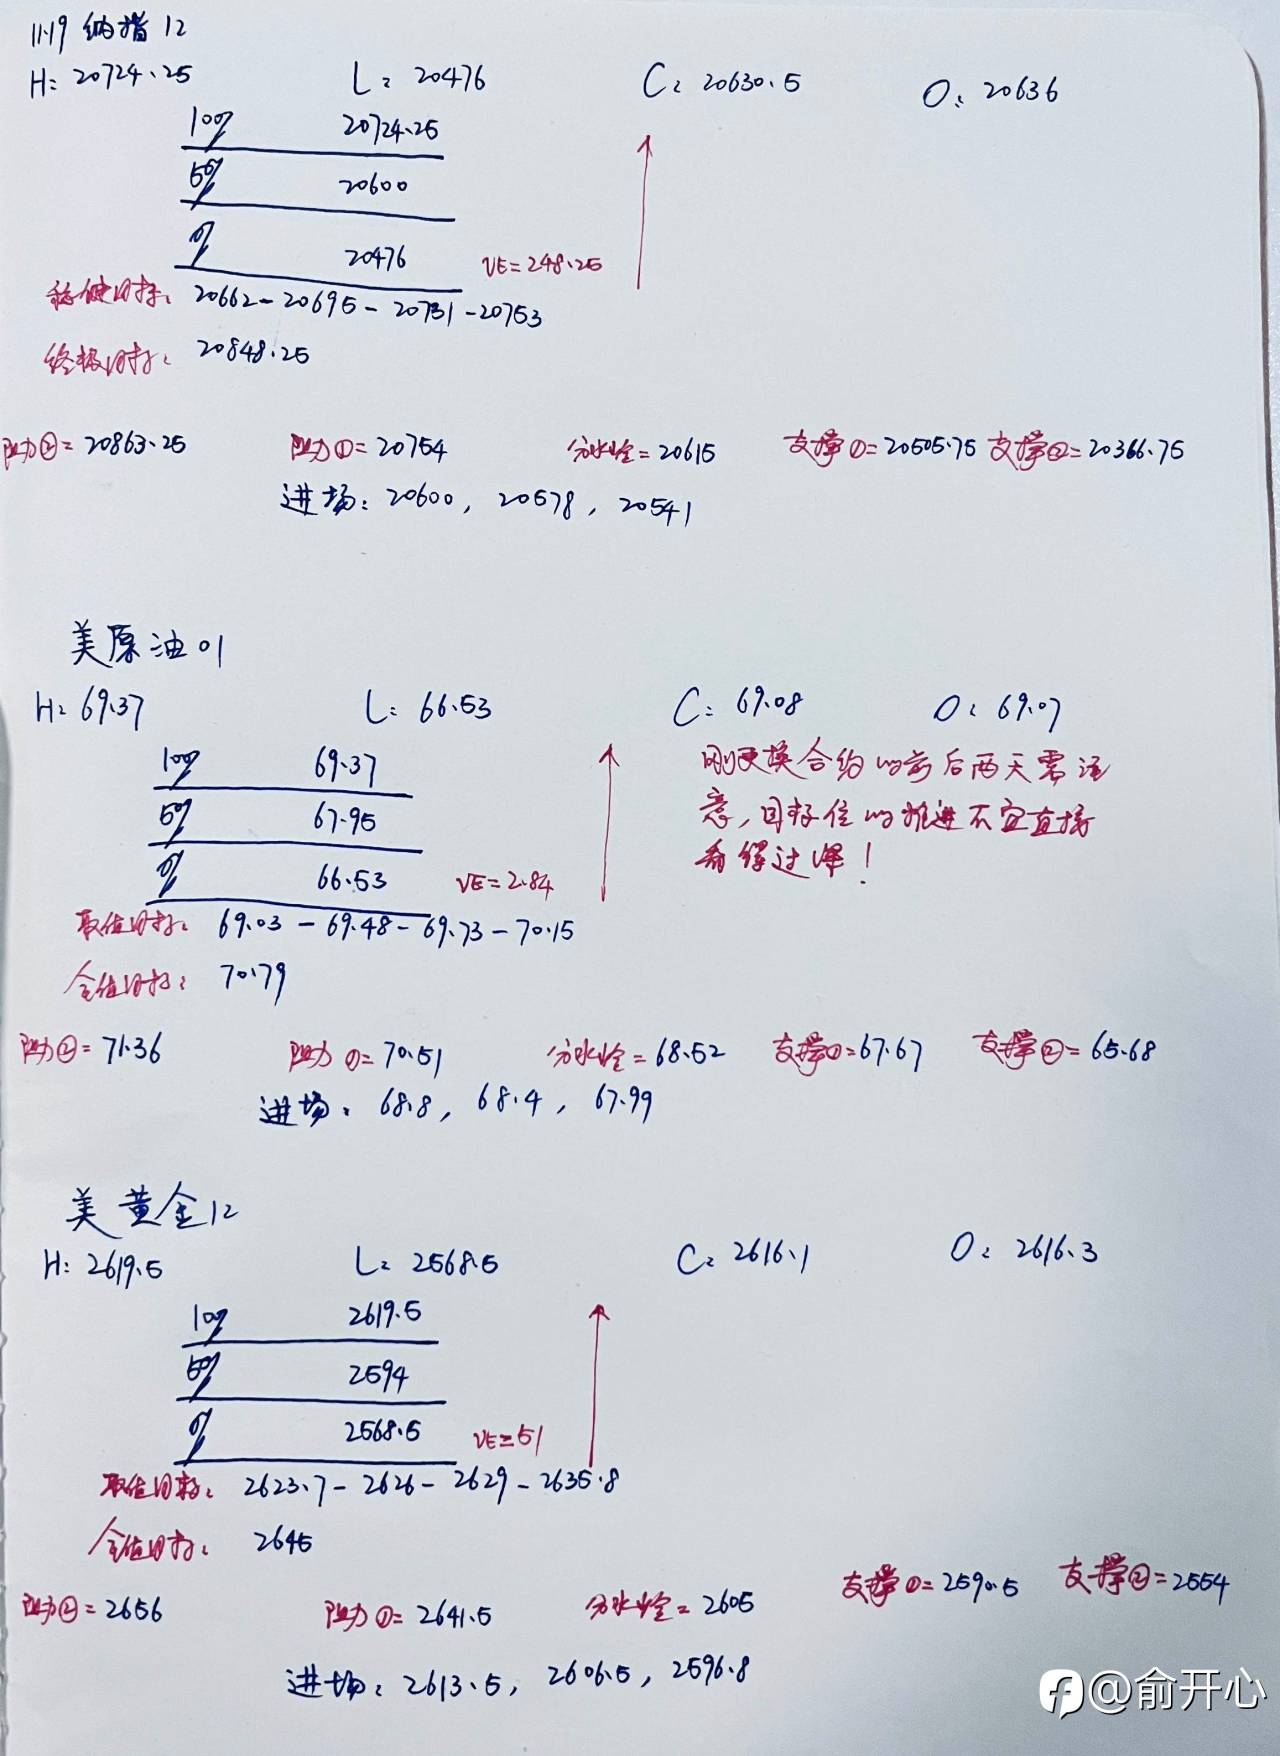 11.19 纳指12
H: 20724.25 L: 20476 C: 20630.5 O: 20636
100% 20724.25
50% 20600
0% 20476 VE=248.25
稳健目标: 20662-20695-20731-20753
终极目标: 20848.25
阻力②=20863.25 阻力①=20754 分水岭=20615 支撑①=20505.75 支撑②=20366.75
进场: 20600, 20578, 20541
美原油01
H: 69.37 L: 66.53 C: 69.08 O: 69.07
100% 69.37
50% 67.95
0% 66.53 VE=2.84
刚更换合约的前后两天需注
意,目标位的推进不宜直接
看得过绎!
取值目标: 69.03-69.48-69.73-70.15
全值目标: 70.79
阻力②=71.36 阻力①=70.51 分水岭=68.52 支撑①=67.67 支撑②=65.68
进场: 68.8, 68.4, 67.99
美黄金12
H: 2619.5 L: 2568.5 C: 2616.1 O: 2616.3
100% 2619.5
50% 2594
0% 2568.5 VE=51
取值目标: 2623.7-2626-2629-2635.8
全值目标: 2645
阻力②=2656 阻力①=2641.5 分水岭=2605 支撑①=2590.5 支撑②=2554
进场: 2613.5, 2606.5, 2596.8
@俞开心